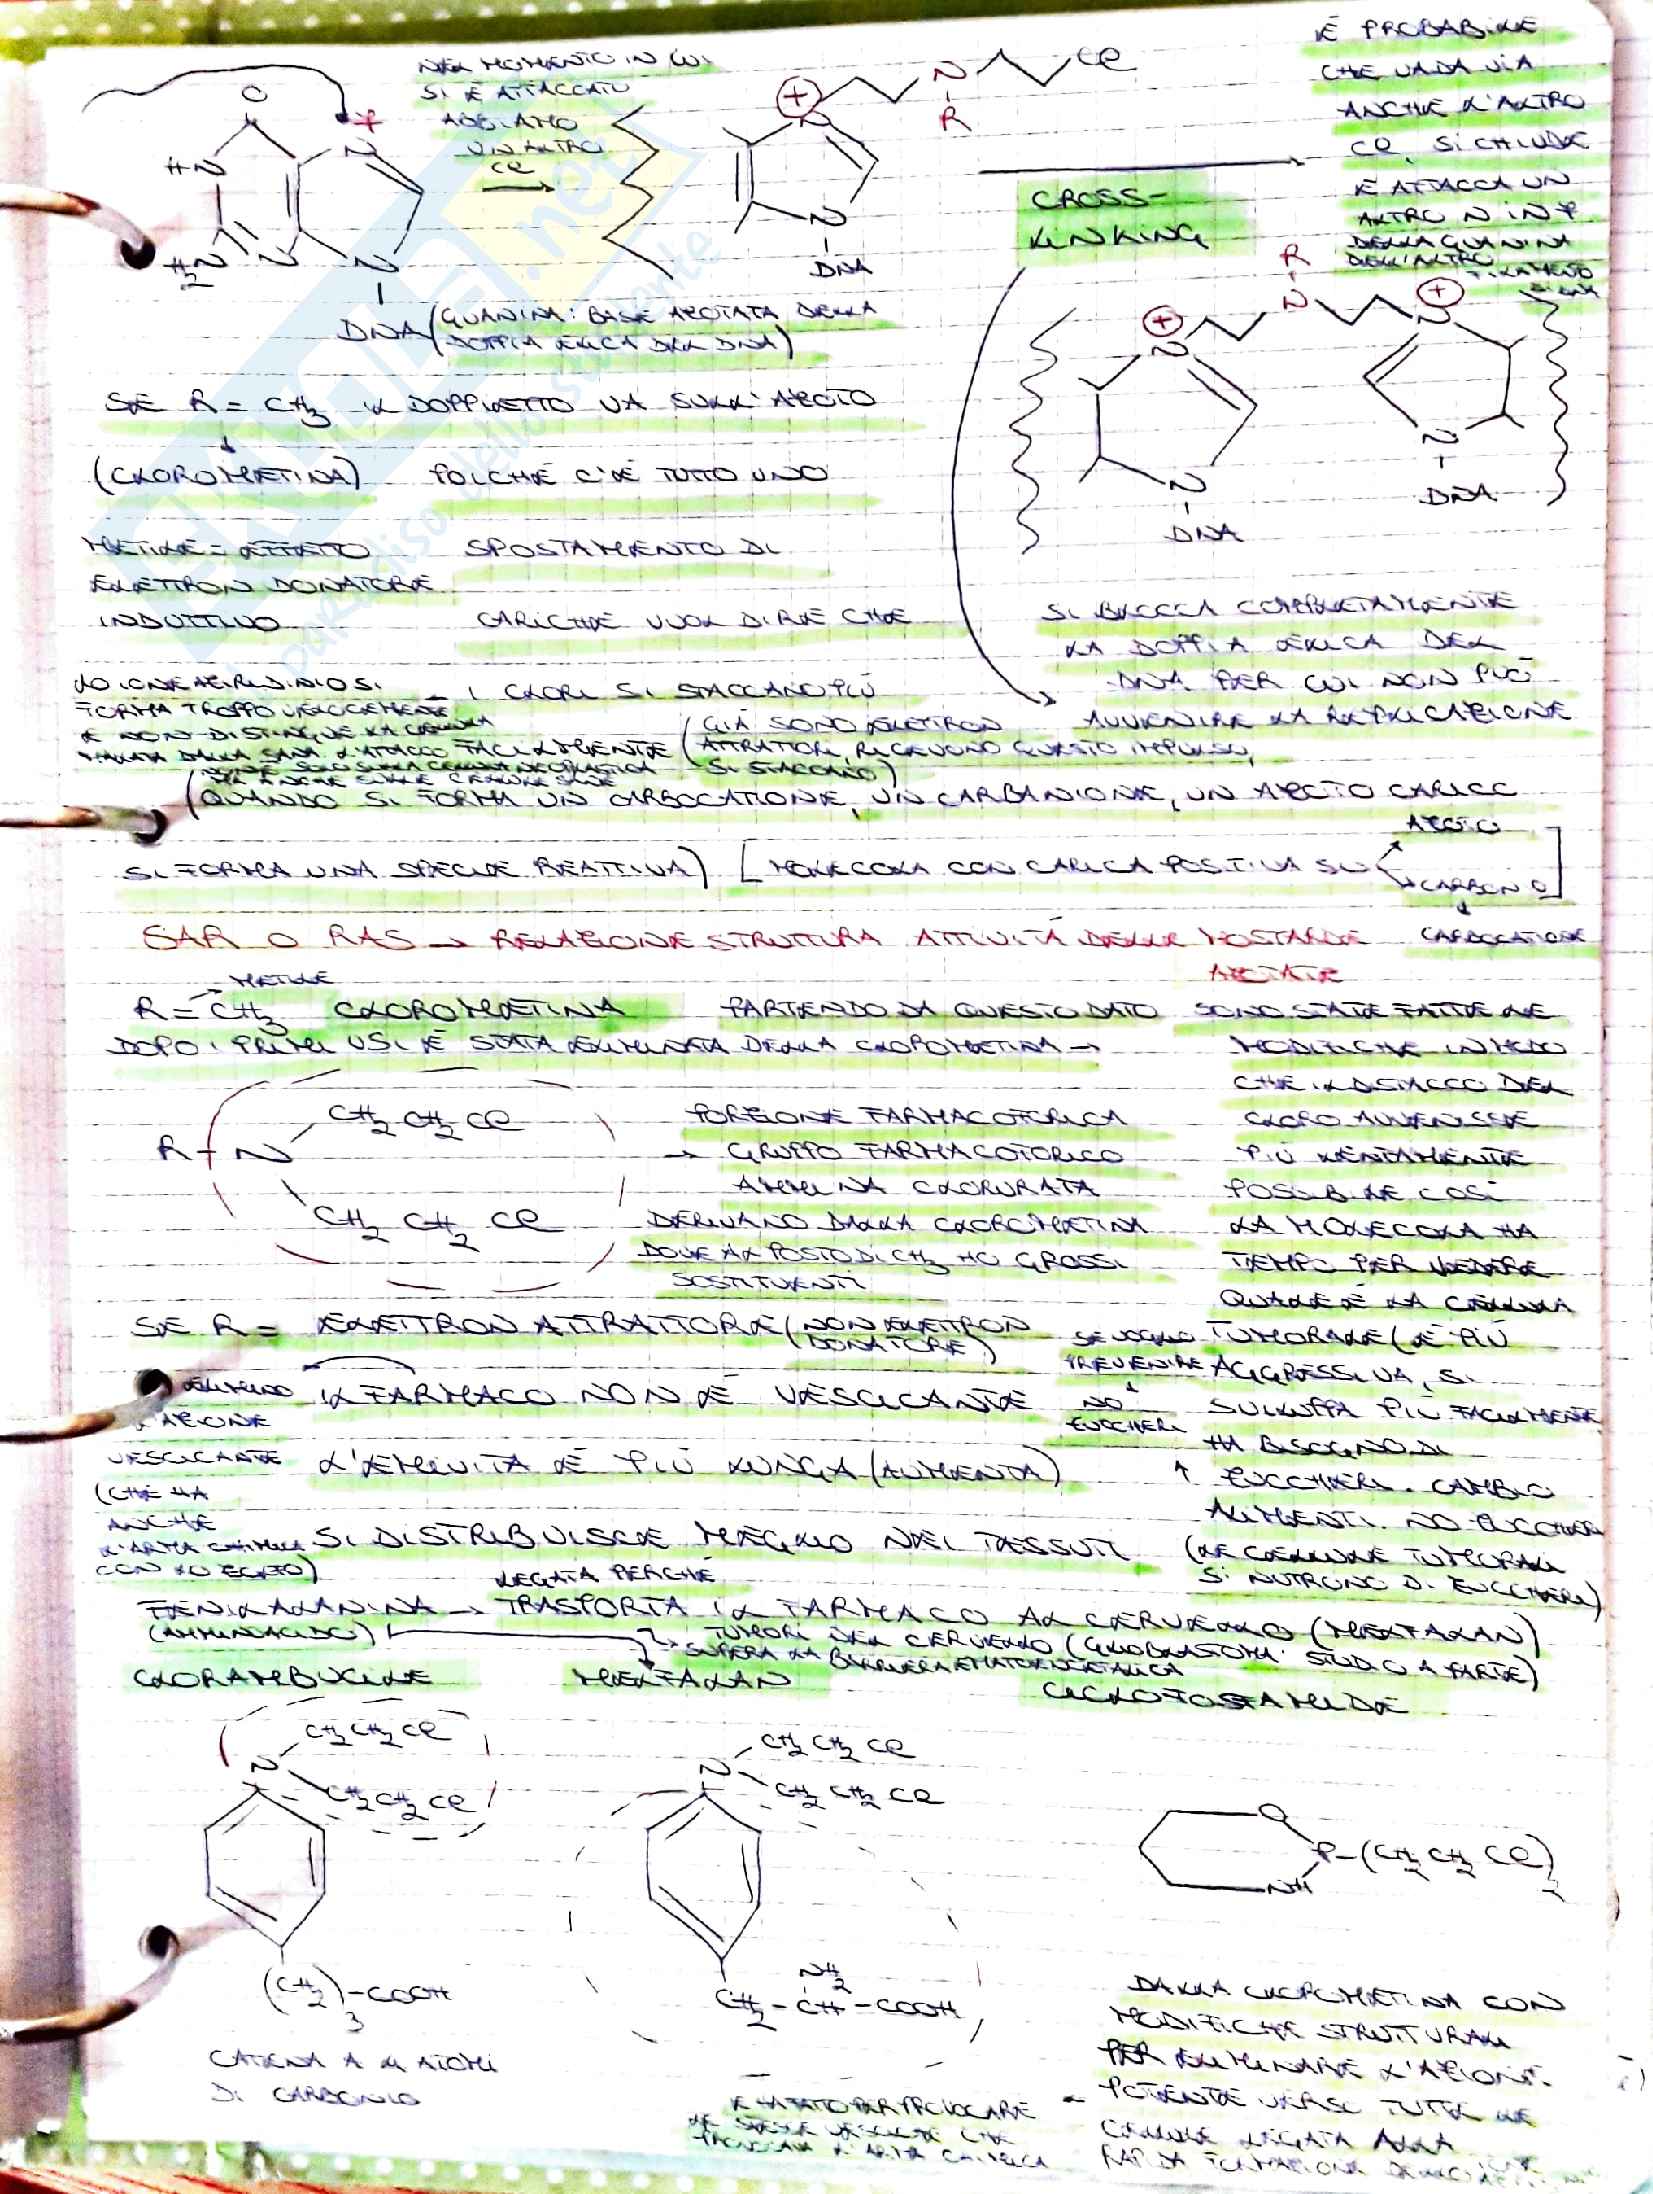 NEL MOMENTO IN CUI
SI È ATTACCATO
ABBIAMO
UN ALTRO
Cl
O
HN
N
H2N
N
N
DNA
(GUANINA: BASE AZOTATA DELLA
DOPPIA ELICA DEL DNA)
+
N
N
R
Cl
N
DNA
CROSS-
LINKING
È PROBABILE
CHE VADA VIA
ANCHE L'ALTRO
Cl, SI CHIUDE
E ATTACCA UN
ALTRO N IN 7
DELLA GUANINA
DELL'ALTRO
FILAMENTO
R
+
N
N
+
N
N
DNA
N
DNA
SE R = CH3 IL DOPPIETTO VA SULL'AZOTO
(CLOROMETINA) POICHÉ C'È TUTTO UNO
METILE = EFFETTO SPOSTAMENTO DI
ELETTRON DONATORE
INDUTTIVO CARICHE VUOL DIRE CHE
SI BLOCCA COMPLETAMENTE
LA DOPPIA ELICA DEL
DNA PER CUI NON PUÒ
AVVENIRE LA REPLICAZIONE
LO IONE AZIRIDINIO SI
FORMA TROPPO VELOCEMENTE
E NON DISTINGUE LA CELLULA
MALATA DALLA SANA
I CLORI SI STACCANO PIÙ
FACILMENTE (GIÀ SONO ELETTRON
ATTRATTORI, RICEVONO QUESTO IMPULSO,
SI STACCANO)
(QUANDO SI FORMA UN CARBOCATIONE, UN CARBANIONE, UN AZOTO CARICO
SI FORMA UNA SPECIE REATTIVA) [MOLECOLA CON CARICA POSITIVA SU
AZOTO
CARBONIO]
CARBOCATIONE
SAR O RAS → RELAZIONE STRUTTURA ATTIVITÀ DELLE MOSTARDE
AZOTATE
METILE
R = CH3 CLOROMETINA PARTENDO DA QUESTO DATO SONO STATE FATTE LE
DOPO I PRIMI USI È STATA ELIMINATA DELLA CLOROMETINA → MODIFICHE IN MODO
CHE IL DISTACCO DEL
CLORO AVVENISSE
PIÙ LENTAMENTE
POSSIBILE COSÌ
LA MOLECOLA HA
TEMPO PER VEDERE
QUALE È LA CELLULA
TUMORALE (È PIÙ
AGGRESSIVA, SI
SVILUPPA PIÙ FACILMENTE
HA BISOGNO DI
ZUCCHERI. CAMBIO
ALIMENTI. NO ZUCCHERI
(LE CELLULE TUMORALI
SI NUTRONO DI ZUCCHERI)
R - N
CH2 CH2 Cl
CH2 CH2 Cl
PORZIONE FARMACOFORICA
→ GRUPPO FARMACOFORICO
AMMINA CLORURATA
DERIVANO DALLA CLOROMETINA
DOVE AL POSTO DI CH3 HO GROSSI
SOSTITUENTI
SE R = ELETTRON ATTRATTORE (NON ELETTRON
DONATORE)
SE VOGLIO
PREVENIRE
NO
ZUCCHERI
IL FARMACO NON È VESCICANTE
ELIMINO
L'AZIONE
VESCICANTE
(CHE HA
ANCHE
L'ARMA CHIMICA
CON LO ZOLFO)
L'EMIVITA È PIÙ LUNGA (AUMENTA)
SI DISTRIBUISCE MEGLIO NEI TESSUTI
LEGATA PERCHÉ
FENILALANINA → TRASPORTA IL FARMACO AL CERVELLO (MELFALAN)
(AMMINOACIDO)
TUMORI DEL CERVELLO (GLIOBLASTOMA: STUDIO A PARTE)
SUPERA LA BARRIERA EMATOENCEFALICA
CLORAMBUCILE
MELFALAN
CICLOFOSFAMIDE
N
CH2 CH2 Cl
CH2 CH2 Cl
(CH2)3-COOH
CATENA A 4 ATOMI
DI CARBONIO
N
CH2 CH2 Cl
CH2 CH2 Cl
NH2
CH2 - CH - COOH
O
P-(CH2 CH2 Cl)2
NH
DALLA CLOROMETINA CON
MODIFICHE STRUTTURALI
PER ELIMINARE L'AZIONE
POTENTE VERSO TUTTE LE
CELLULE LEGATA ALLA
RAPIDA FORMAZIONE
E HA FATTO PER PROVOCARE
LE STESSE VESCICHE CHE
FACEVA L'ARMA CHIMICA